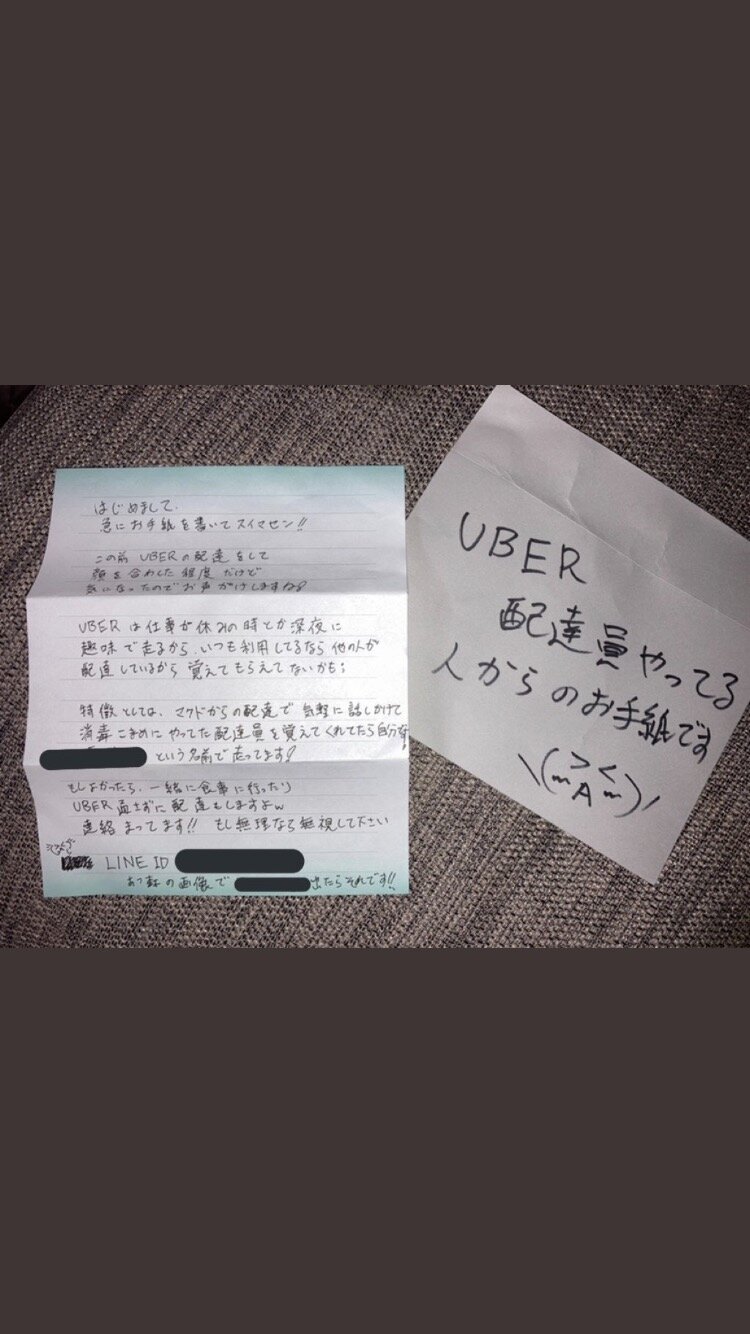 はじめまして、
急にお手紙を書いてスイマセン!!
この前 UBERの配達をして
顔を合わした程度だけど
気になったのでお声がけしますね!
UBERは仕事が休みの時とか深夜に
趣味で走るから、いつも利用してるなら他の人が
配達しているから覚えてもらえてないかも;
特徴としては、マクドからの配達で気軽に話しかけて
消毒こまめにやってた配達員を覚えてくれてたら自分
という名前で走ってます!
もしよかったら、一緒に食事に行ったり
UBER 配達もしますよw
連絡まってます!! もし無理なら無視して下さい
LINE ID
の画像で 出たらそれです!!
UBER
配達員やってる
人からのお手紙です
\(>A<)/